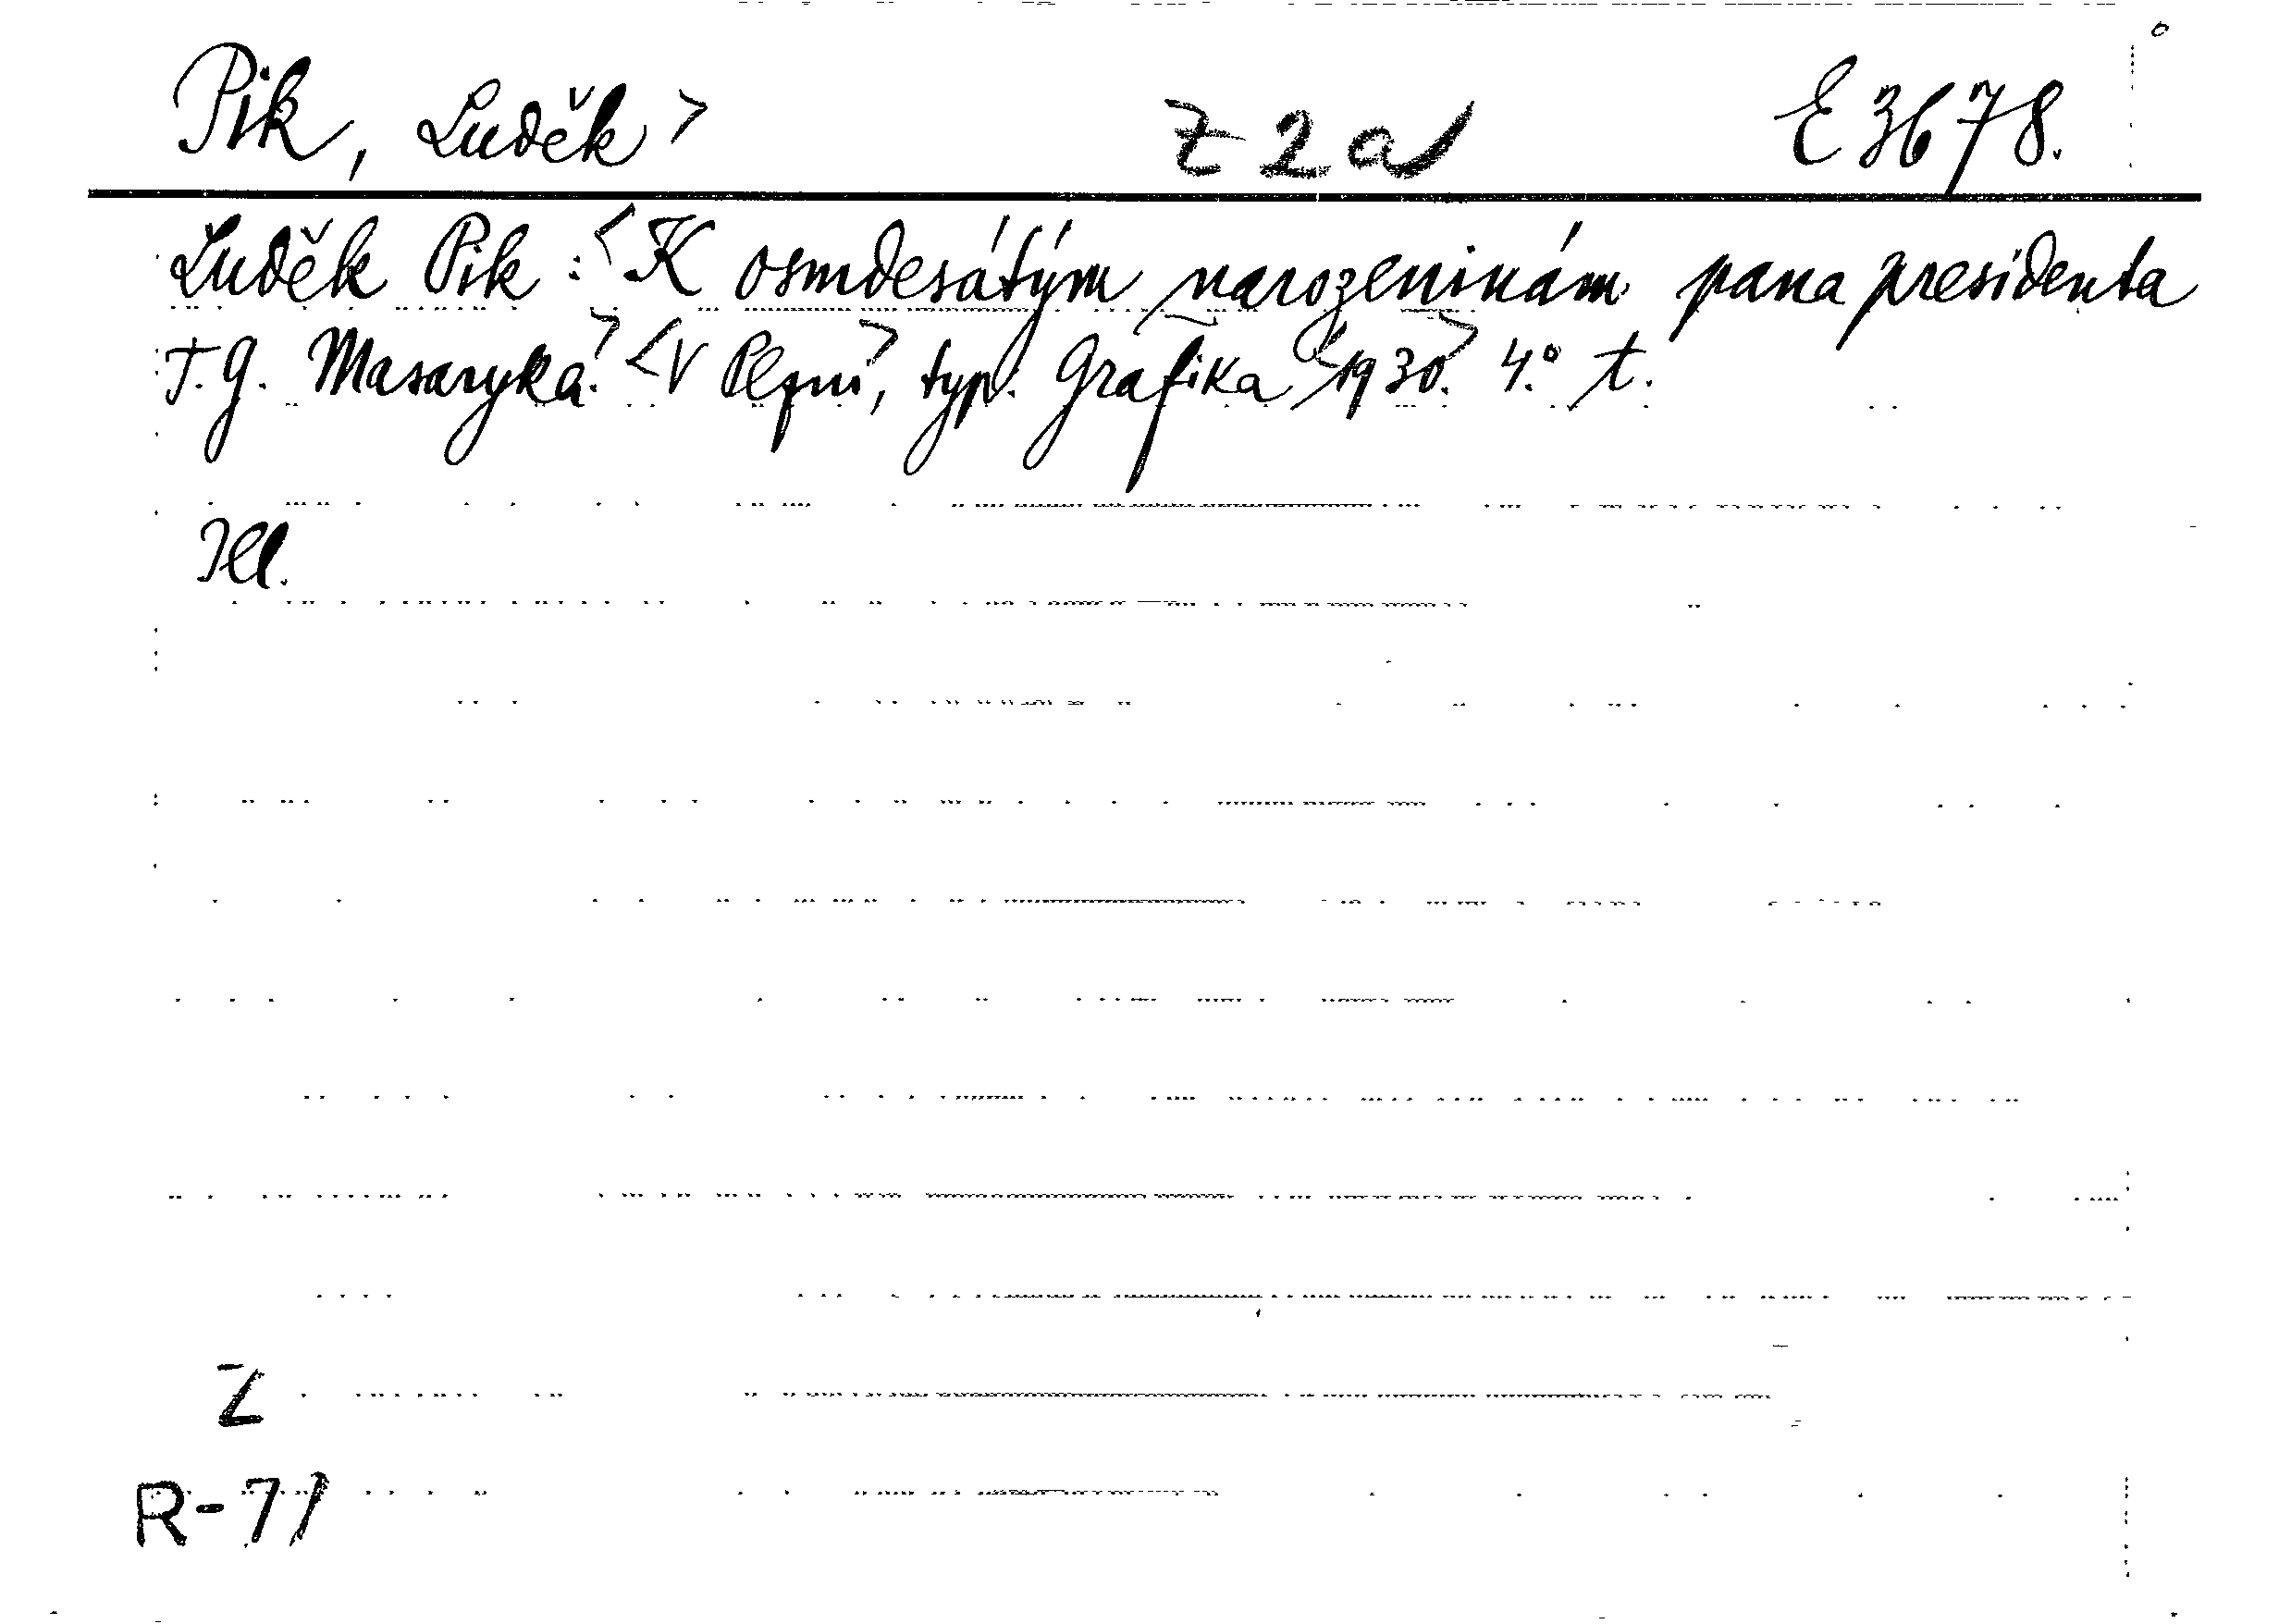 Pik, Luděk > Z 2 a E 3678.
Luděk Pik: <K osmdesátým narozeninám pana presidenta
T. G. Masaryka.> <V Plzni>, typ. Grafika <1930>. 4.° t.
Ill.
Z
R-71